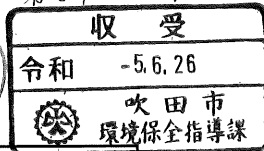 収受
令和 -5.6.26
吹田市
環境保全指導課